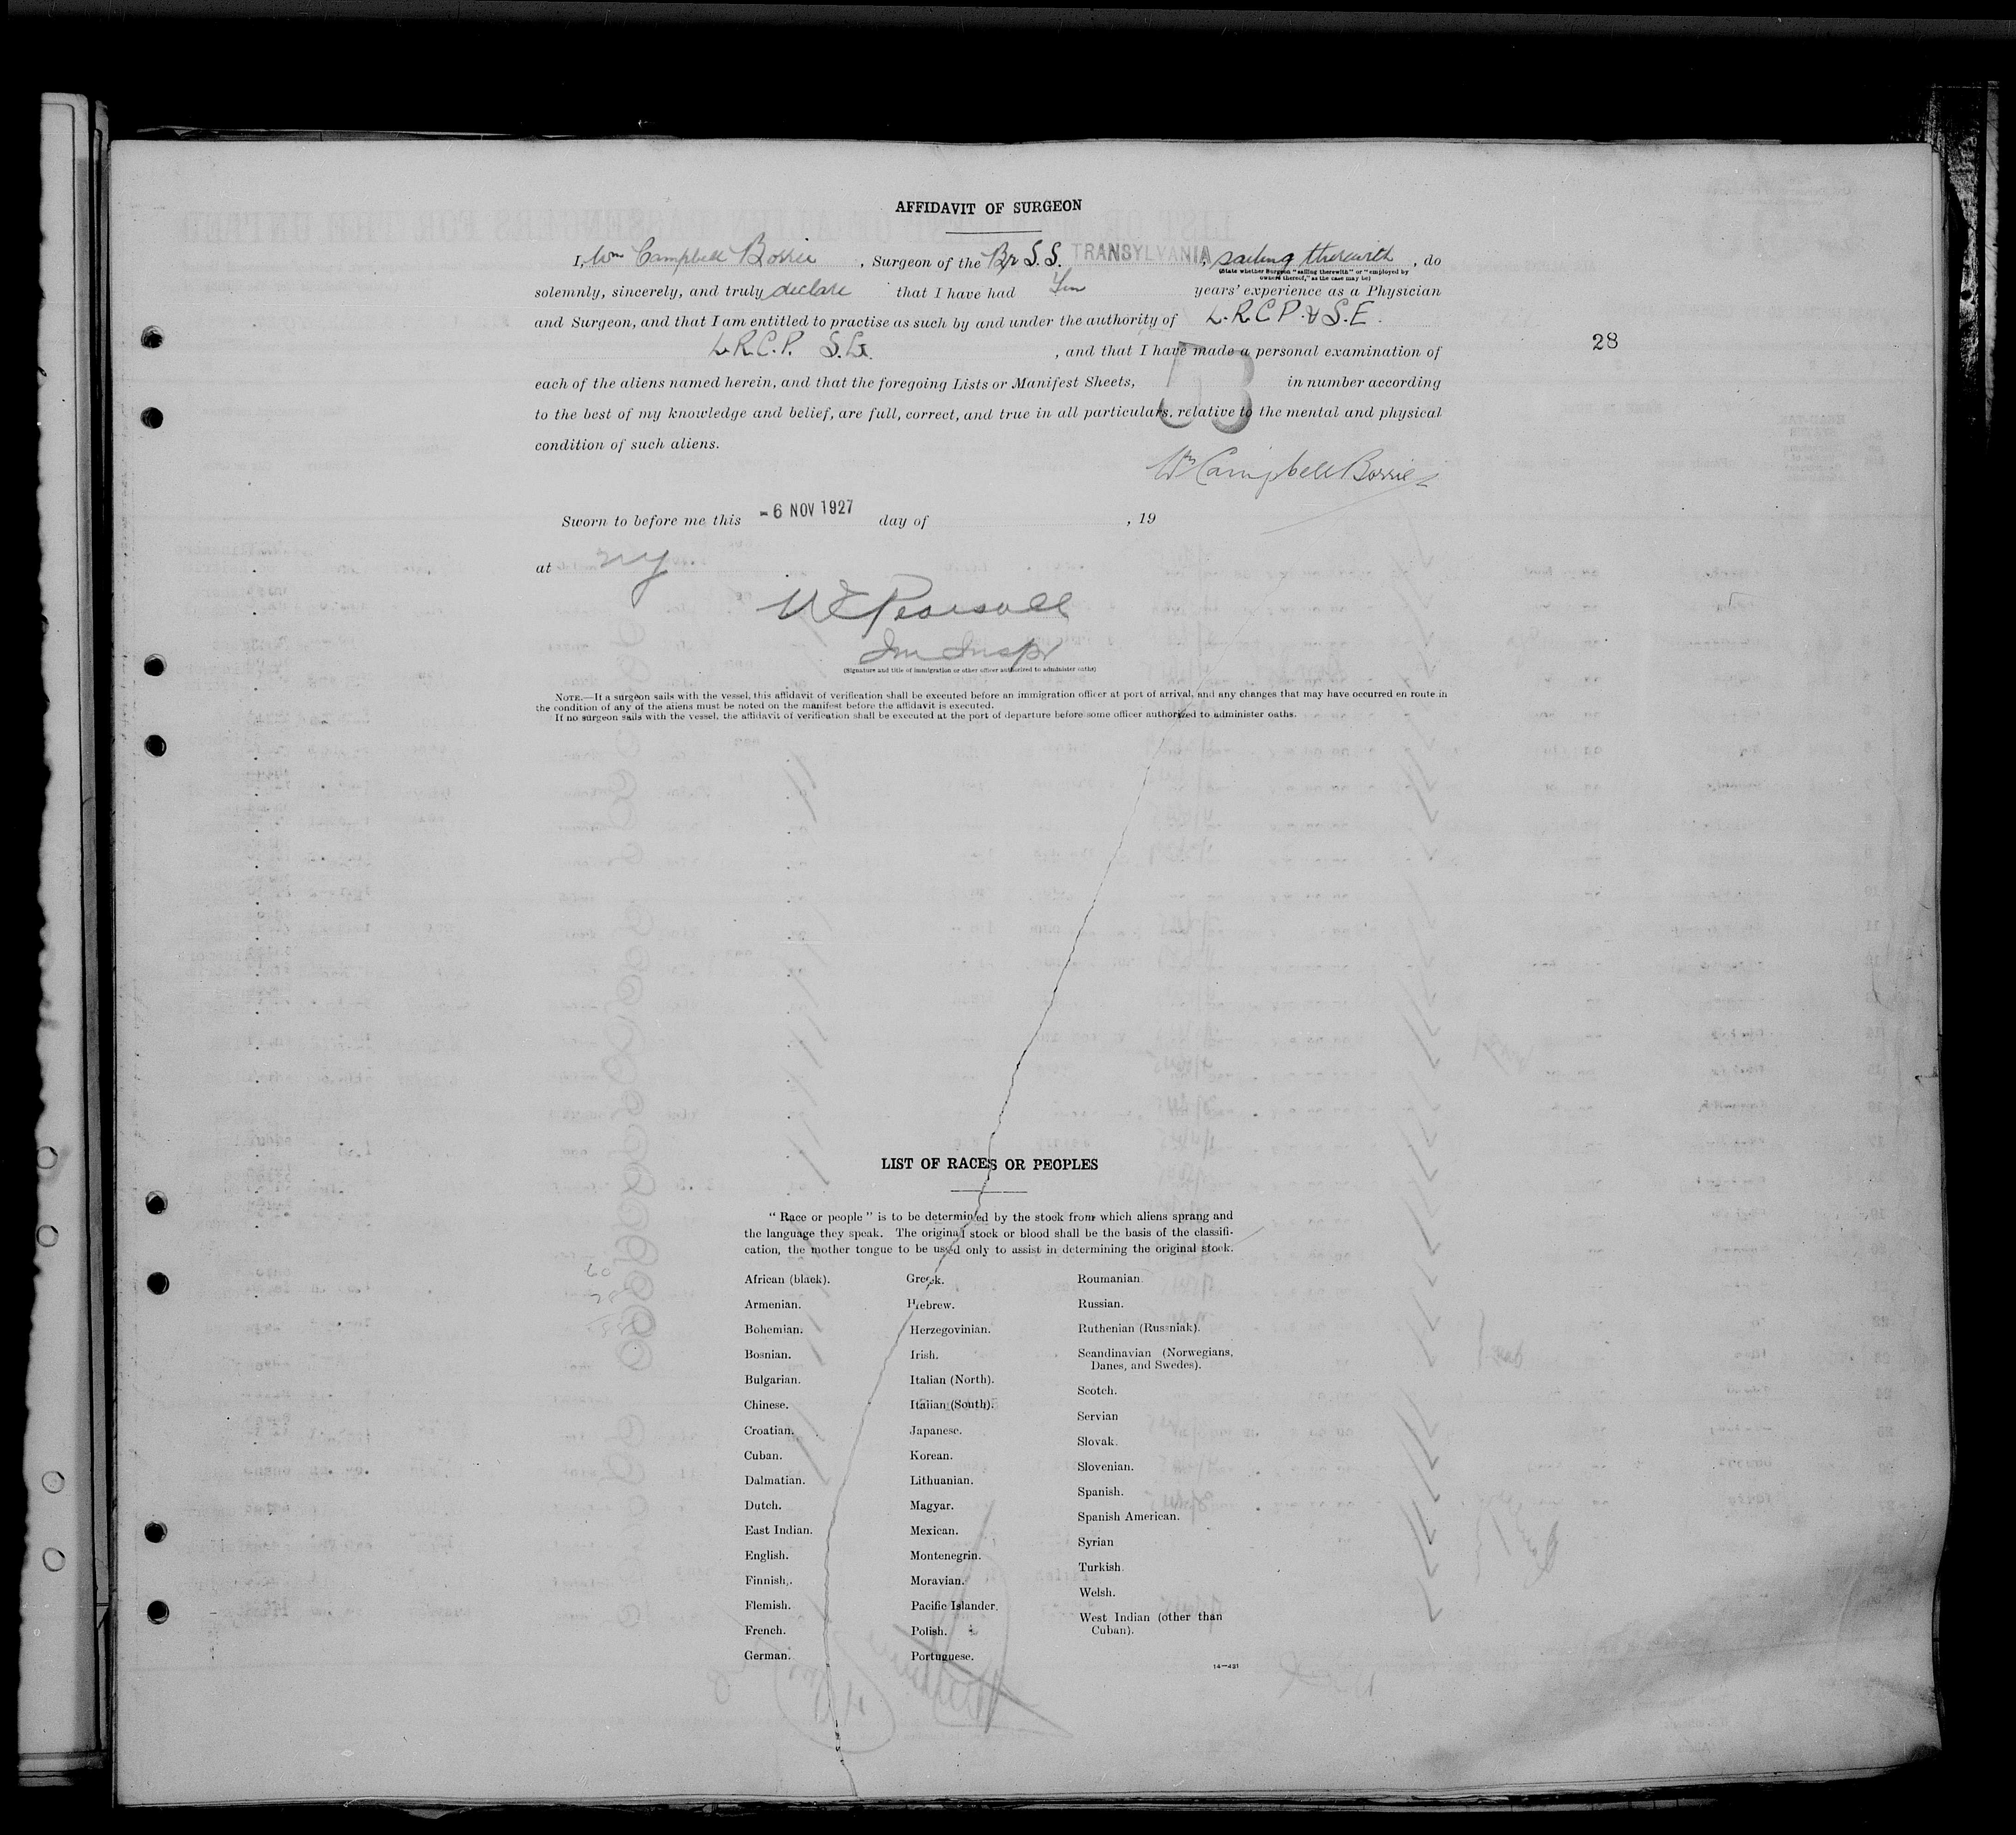 AFFIDAVIT OF SURGEON
I, Wm Campbell Borrie, Surgeon of the Br S.S. TRANSYLVANIA, sailing therewith, do
(State whether Surgeon "sailing therewith" or "employed by
owners thereof," as the case may be)
solemnly, sincerely, and truly declare that I have had years' experience as a Physician
and Surgeon, and that I am entitled to practise as such by and under the authority of L.R.C.P. & S.E.
L.R.C.P. S.E., and that I have made a personal examination of
28
each of the aliens named herein, and that the foregoing Lists or Manifest Sheets, in number according
to the best of my knowledge and belief, are full, correct, and true in all particulars, relative to the mental and physical
condition of such aliens.
Wm Campbell Borrie
Sworn to before me this -6 NOV 1927 day of , 19
at ny
W E Pearsall
Im Inspr
(Signature and title of immigration or other officer authorized to administer oaths)
NOTE.—If a surgeon sails with the vessel, this affidavit of verification shall be executed before an immigration officer at port of arrival, and any changes that may have occurred en route in
the condition of any of the aliens must be noted on the manifest before the affidavit is executed.
If no surgeon sails with the vessel, the affidavit of verification shall be executed at the port of departure before some officer authorized to administer oaths.
LIST OF RACES OR PEOPLES
"Race or people" is to be determined by the stock from which aliens sprang and
the language they speak. The original stock or blood shall be the basis of the classifi-
cation, the mother tongue to be used only to assist in determining the original stock.
African (black).
Armenian.
Bohemian.
Bosnian.
Bulgarian.
Chinese.
Croatian.
Cuban.
Dalmatian.
Dutch.
East Indian.
English.
Finnish.
Flemish.
French.
German.
Greek.
Hebrew.
Herzegovinian.
Irish.
Italian (North).
Italian (South).
Japanese.
Korean.
Lithuanian.
Magyar.
Mexican.
Montenegrin.
Moravian.
Pacific Islander.
Polish.
Portuguese.
Roumanian.
Russian.
Ruthenian (Russniak).
Scandinavian (Norwegians,
Danes, and Swedes).
Scotch.
Servian
Slovak.
Slovenian.
Spanish.
Spanish American.
Syrian
Turkish.
Welsh.
West Indian (other than
Cuban).
14—431